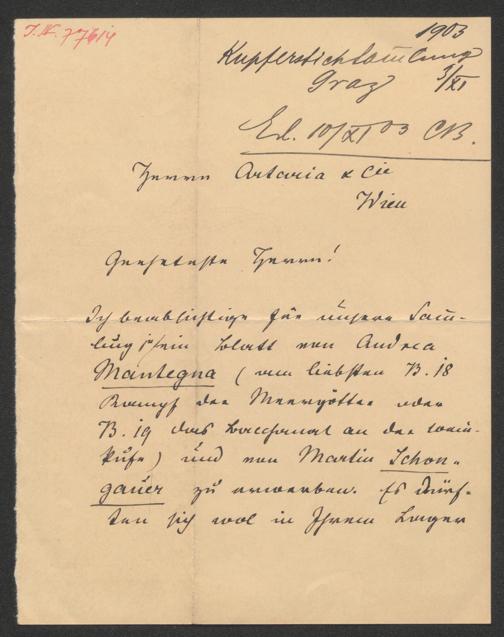 I.N. 77614
1903
Kupferstichsam̄lung
Graz 3/XI
Ed. 10/XI 03 CB.
Herrn Artaria & Cie
Wien
Geehrteste Herrn!
Ich beabsichtige für unsere Sam̄-
lung je ein Blatt von Andrea
Mantegna (am liebsten B. 18
Kampf der Meergötter oder
B. 19 das Bacchanal an der Wein-
kufe) und von Martin Schon-
gauer zu erwerben. Es dürf-
ten sich wol in Ihrem Lager